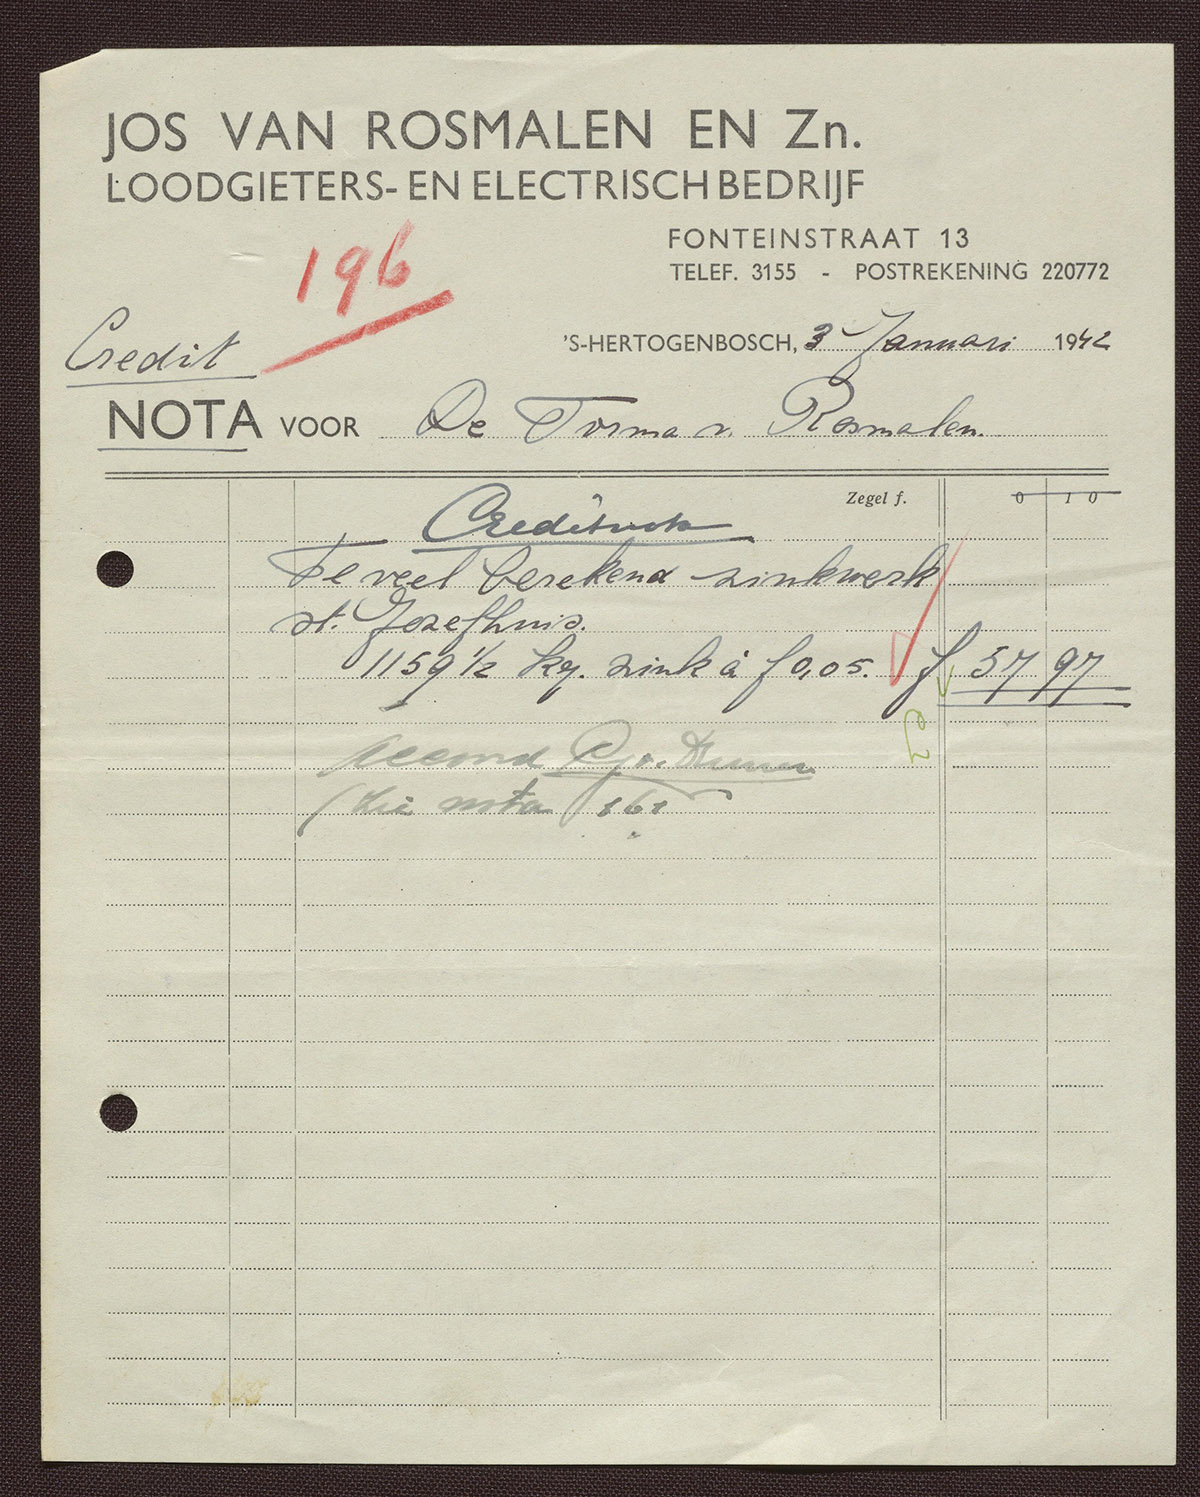 JOS VAN ROSMALEN EN Zn.
LOODGIETERS- EN ELECTRISCHBEDRIJF
FONTEINSTRAAT 13
TELEF. 3155 - POSTREKENING 220772
196
Credit
'S-HERTOGENBOSCH, 3 Januari 1942
NOTA VOOR De Firma v. Rosmalen.
Zegel f. 0 10
Creditnota
Te veel berekend zinkwerk
st. Jozefhuis.
1159 1/2 kg. zink à f 0,05. f 57 97
accoord
(zie nota 161